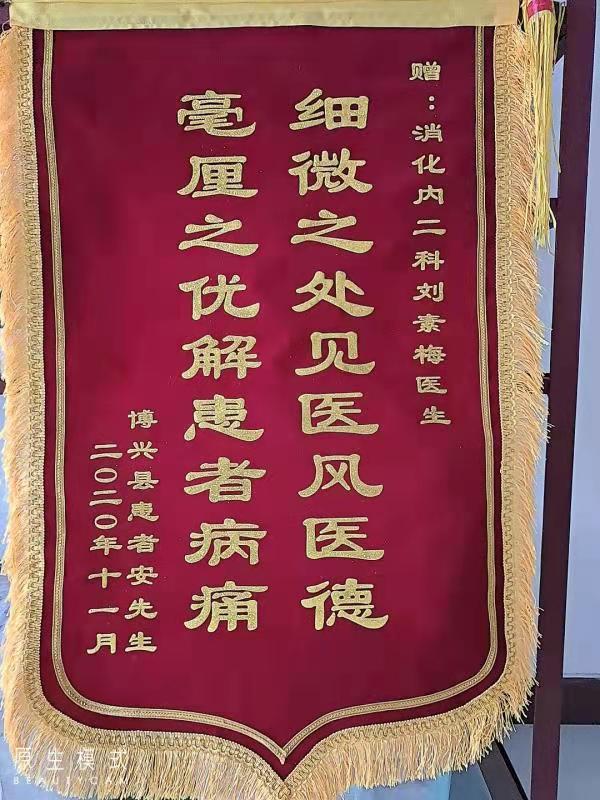 赠：消化内二科刘素梅医生
细微之处见医风医德
毫厘之优解患者病痛
博兴县患者安先生
二〇二〇年十一月
原生模式
BEAUTYCAM